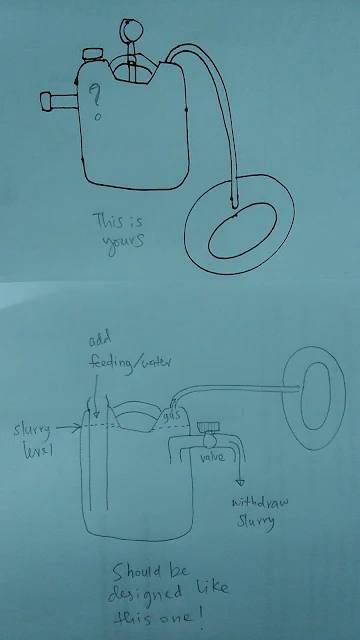 ?
This is
yours
add
feeding/water
slurry
level
gas
valve
withdraw
slurry
Should be
designed like
this one!